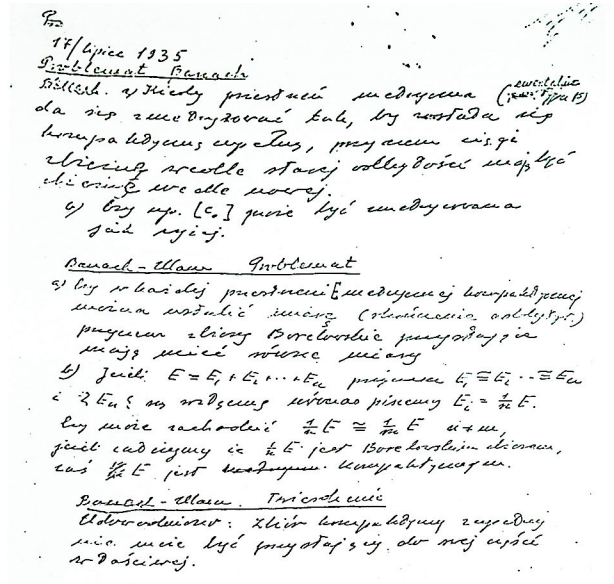 17/lipca 1935
Problemat Banach
a) Kiedy przestrzeń metryczna (ewentualnie typu B)
da się zmetryzować tak, by została się
kompaktyczną zupełną, przyczem ciągi
zbieżne wedle starej odległości mają być
zbieżne wedle nowej.
a) Czy np. [c₀] może być zmetryzowana
jak wyżej.
Banach-Ulam Problemat
a) Czy w każdej przestrzeni E metrycznej kompaktycznej
można ustalić miarę (skończenie addytyw.)
przyczem zbiory Borelowskie przystające
mają mieć równe miary
b) Jeżeli E = E₁ + E₂ + ... + Eₙ przyczem E₁ ≅ E₂ ... ≅ Eₙ
i {Eₙ} są rozłączne wówczas piszemy Eᵢ = 1/n E.
Czy może zachodzić 1/n E ≅ 1/m E n≠m,
jeżeli żądamy że 1/n E jest Borelowskim zbiorem,
zaś E jest kompaktycznym.
Banach-Ulam. Twierdzenie
Udowodniono: Zbiór kompaktyczny
nie może być przystający do swej części
właściwej.